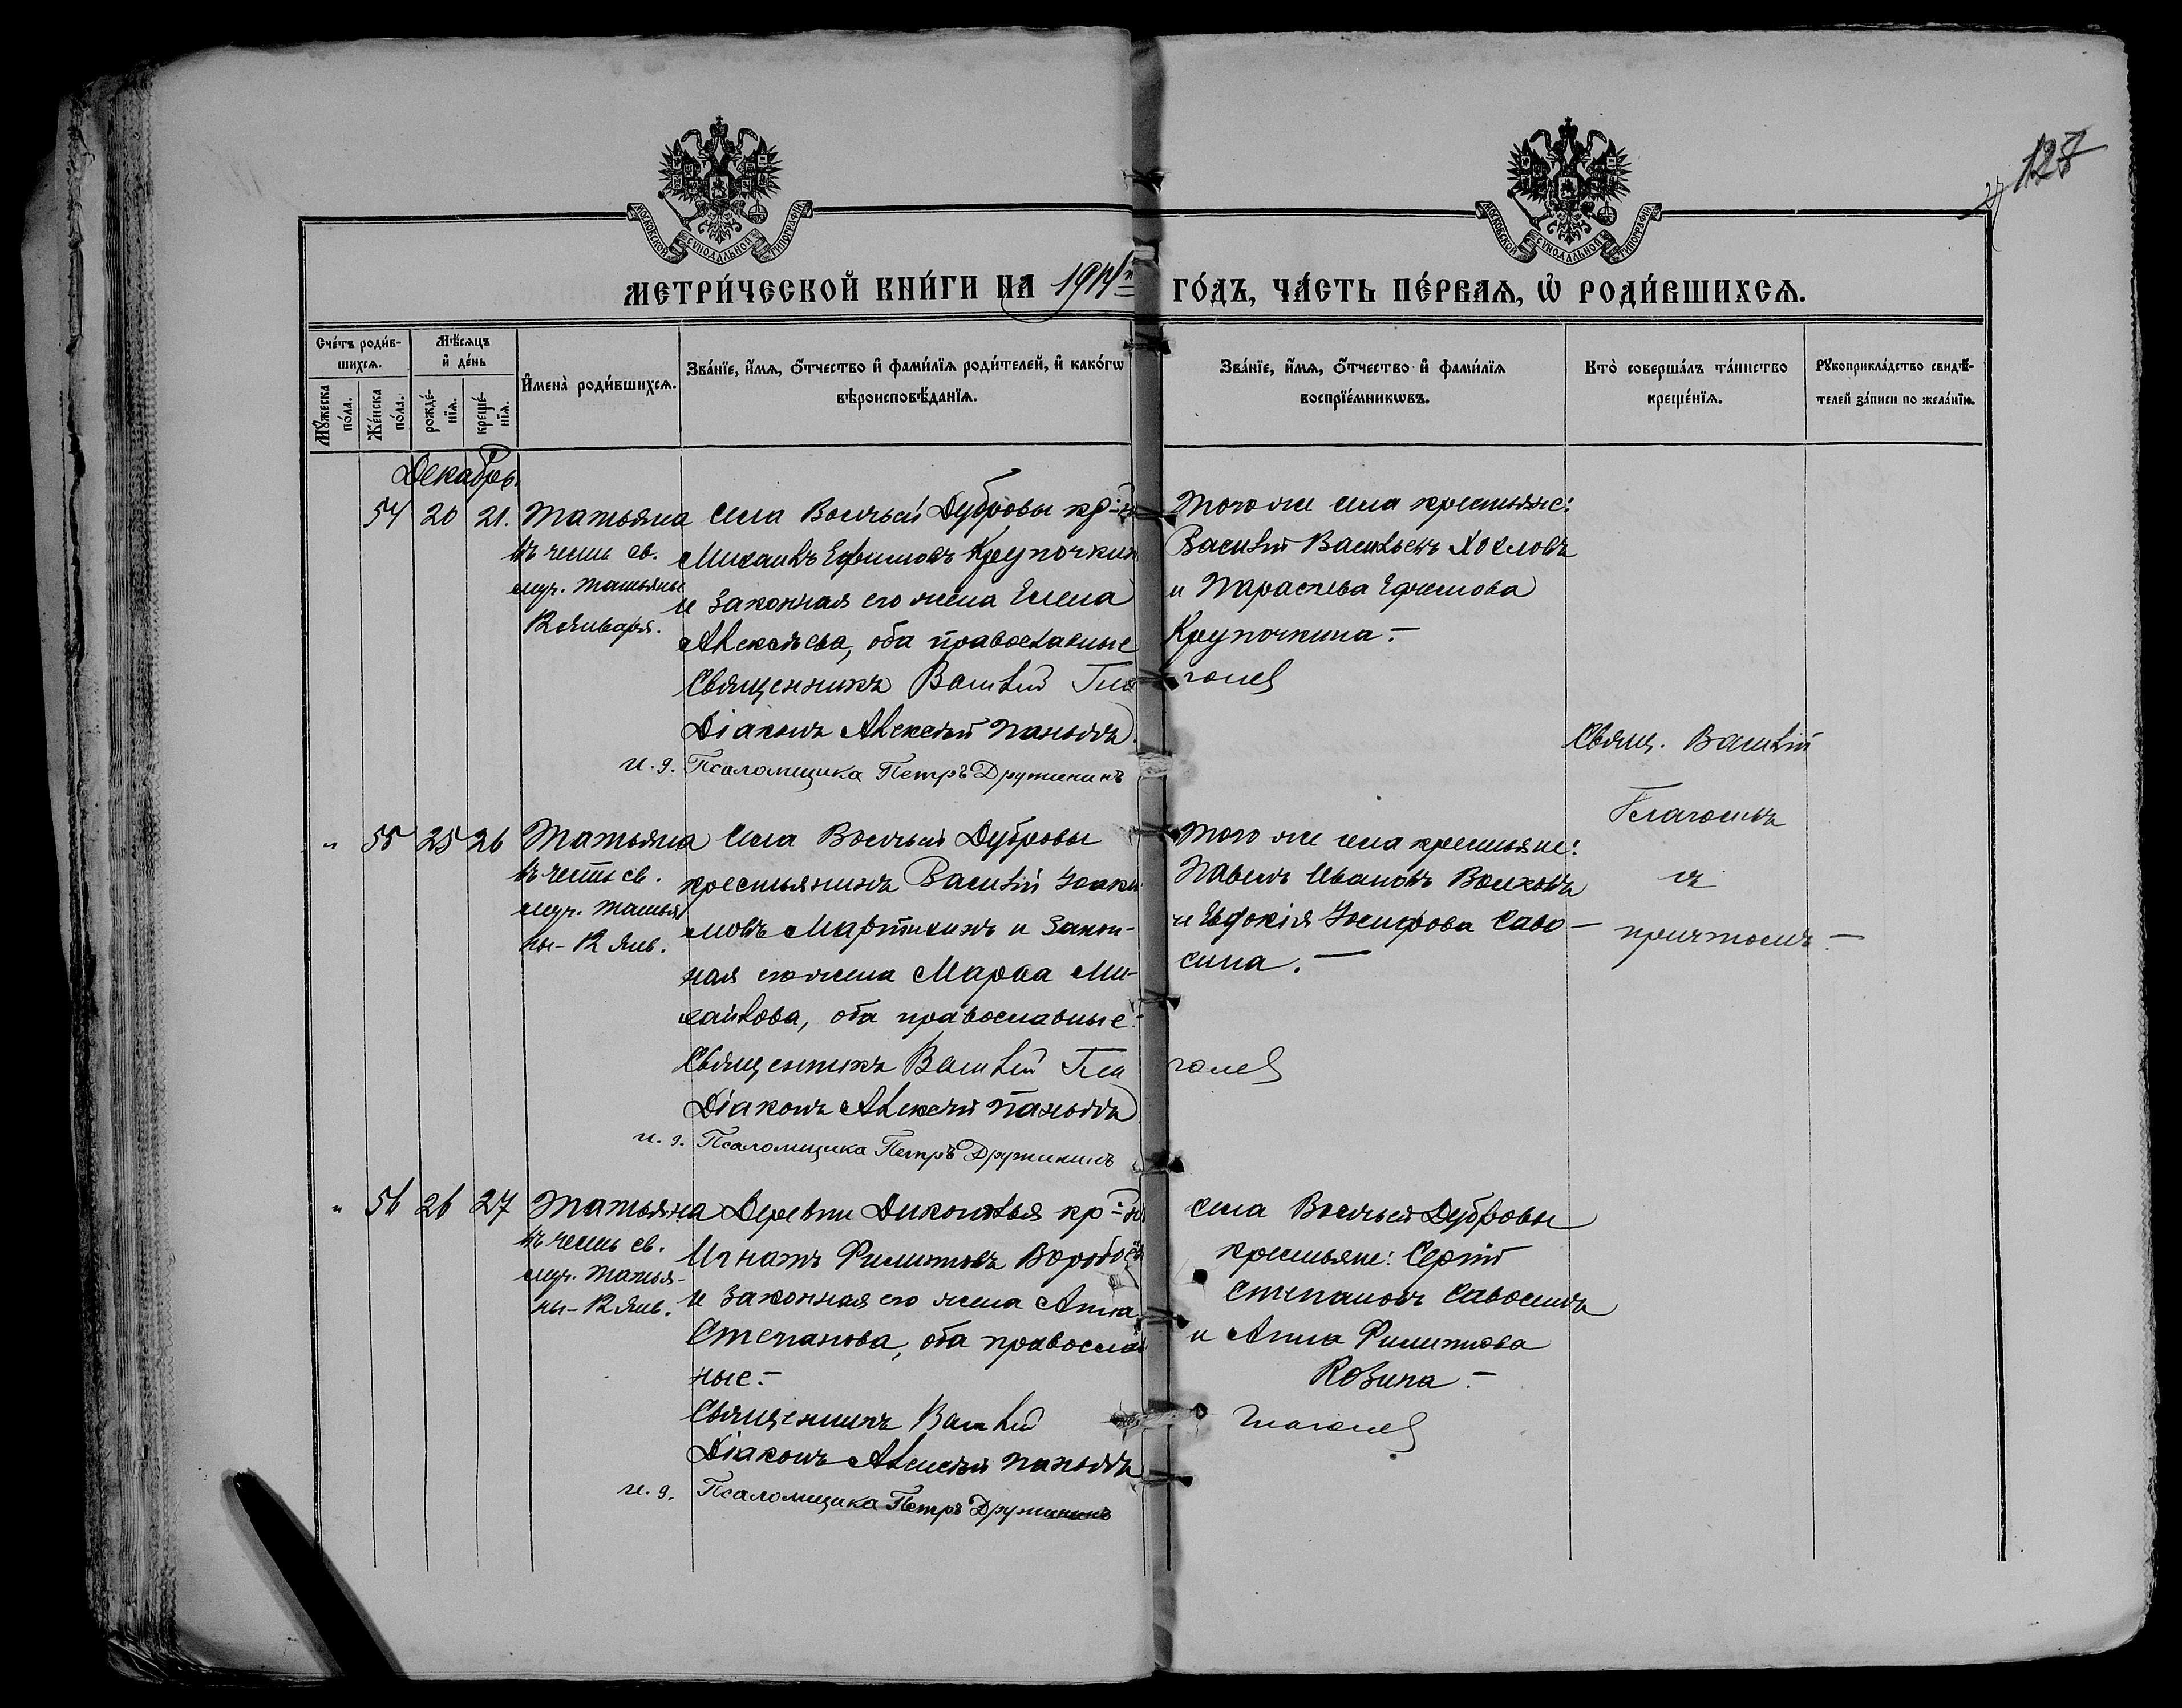 МОСКОВСКОЙ СѴНОДАЛЬНОЙ ТИПОГРАФІИ
МОСКОВСКОЙ СѴНОДАЛЬНОЙ ТИПОГРАФІИ
128
МЕТРИ́ЧЕСКОЙ КНИ́ГИ НА 1914 ГО́ДЪ, ЧА́СТЬ ПЕ́РВАѦ, Ѡ РОДИ́ВШИХСѦ.
Сче́тъ роди́в-
шихсѧ.
Мꙋ́жеска по́ла.
Же́нска по́ла.
Мѣ́сѧцъ
и҆ де́нь
рожде́-
нїѧ.
креще́-
нїѧ.
И҆мена̀ роди́вшихсѧ.
Зва́нїе, и҆́мѧ, ѻ҆́тчество и҆ фами́лїѧ роди́телей, и҆ како́гѡ
вѣроисповѣ́данїѧ.
Зва́нїе, и҆́мѧ, ѻ҆́тчество и҆ фами́лїѧ
воспрїе́мникѡвъ.
Кто̀ соверша́лъ та́инство
креще́нїѧ.
Рꙋкоприкла́дство свидѣ́-
телей за́писи по жела́нїю.
Декабрь.
54 20 21. Татьяна
въ честь св.
муч. Татьяны
12 Января.
Села Волчьей Дубровы кр-нъ
Михаилъ Ефимовъ Крупочкин
и законная его жена Елена
Алексѣева, оба православные
Священникъ Василій Глаголев
Діаконъ Алексѣй Паньковъ
и. д. Псаломщика Петръ Дружининъ
Того же села крестьяне:
Василій Васильевъ Хохловъ
и Параскева Ефимова
Крупочкина.-
Свящ. Василій
Глаголевъ
съ
причтомъ.-
" 55 25 26 Татьяна
въ честь св.
муч. Татья
ны - 12 Янв.
Села Волчьей Дубровы
крестьянинъ Василій Іоаки
мовъ Мартынинъ и закон-
ная его жена Марѳа Ми-
хайлова, оба православные.-
Священникъ Василій Глаголев
Діаконъ Алексѣй Паньковъ
и. д. Псаломщика Петръ Дружининъ
Того же села крестьяне:
Павелъ Ивановъ Волковъ
и Евдокія Іосифова Саво-
сина.-
" 56 26 27 Татьяна
въ честь св.
муч. Татья-
ны - 12 Янв.
Деревни кр-нъ
Игнатъ Филиповъ Воробьев
и законная его жена Анна
Степанова, оба православ
ные.-
Священникъ Василій Глаголев
Діаконъ Алексѣй Паньковъ
и. д. Псаломщика Петръ Дружининъ
Села Волчьей Дубровы
крестьяне: Сергій
Степановъ Савосинъ
и Анна Филипова
Козина.-